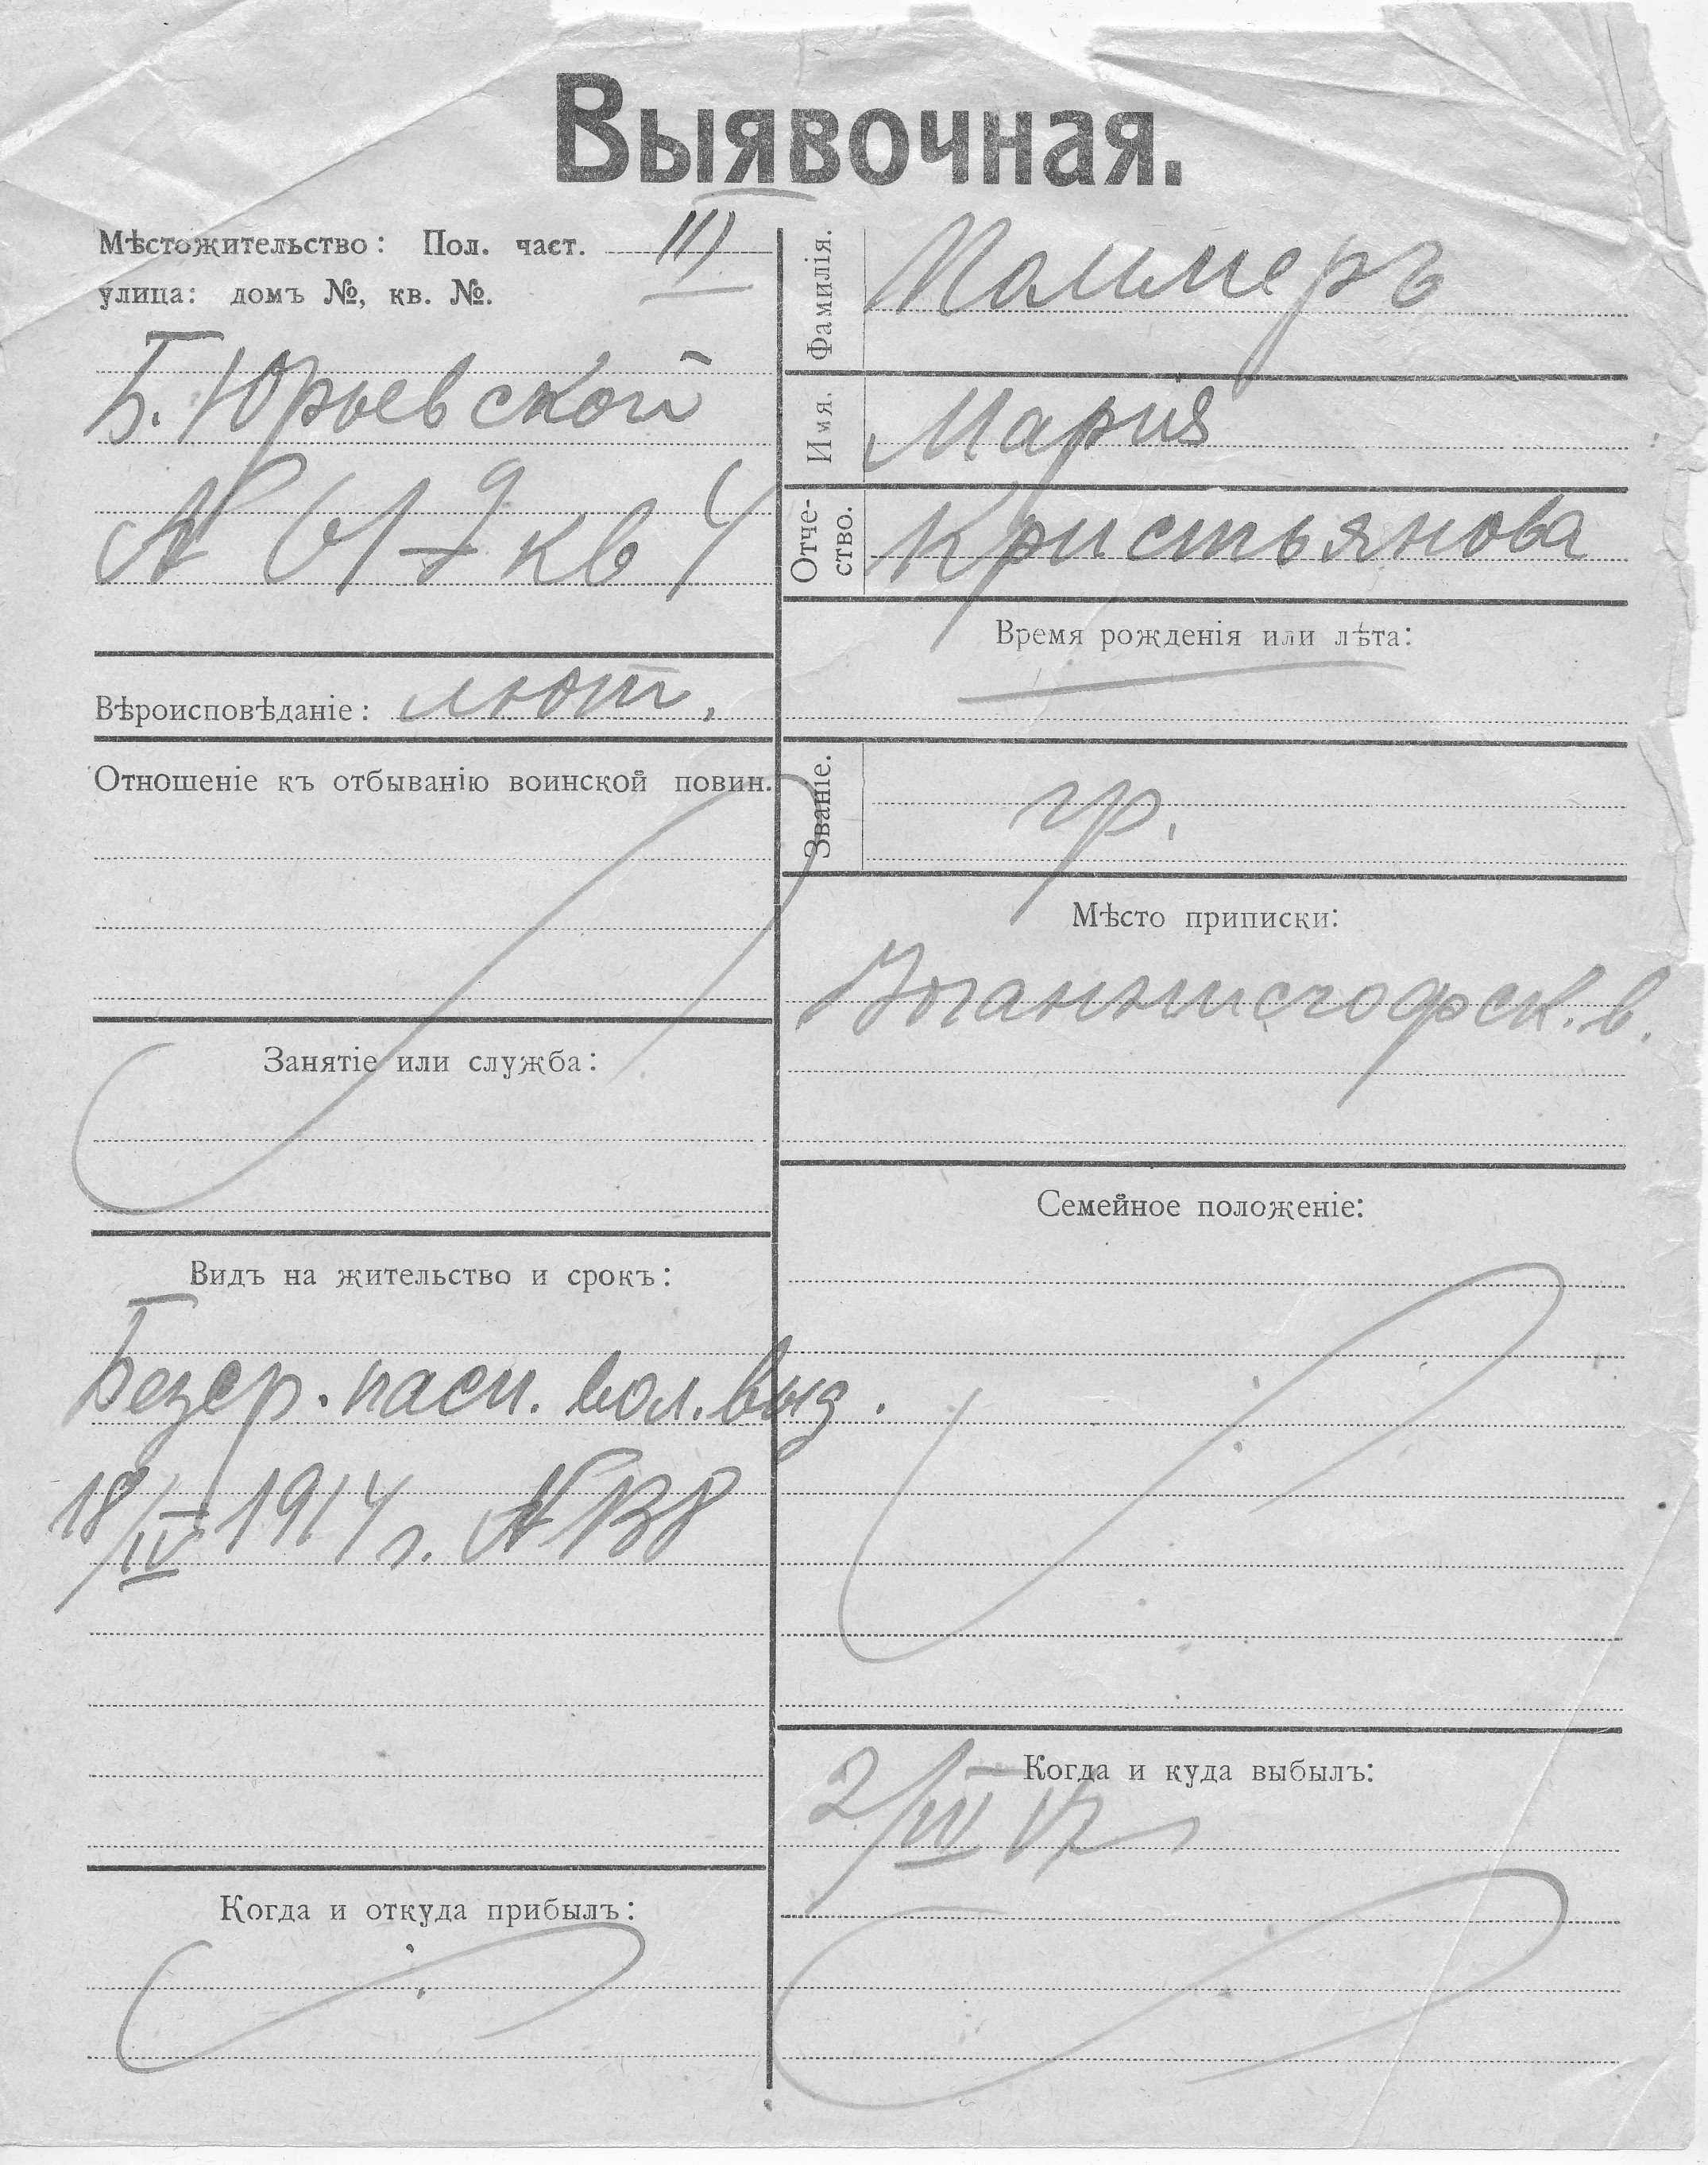 Выявочная.
Мѣстожительство: Пол. част. III
улица: домъ №, кв. №.
Б. Юрьевской
N 61 кв 4
Вѣроисповѣданіе: лют.
Отношеніе къ отбыванію воинской повин.
Занятіе или служба:
Видъ на жительство и срокъ:
Безср. пасп. вол. выд.
18/IV 1914 г. N 138
Когда и откуда прибылъ:
Фамилія.
Имя. Марія
Отче-
ство. Кристьянова
Время рожденія или лѣта:
Званіе. гр.
Мѣсто приписки:
Іоганнисгофск. в.
Семейное положеніе:
Когда и куда выбылъ: